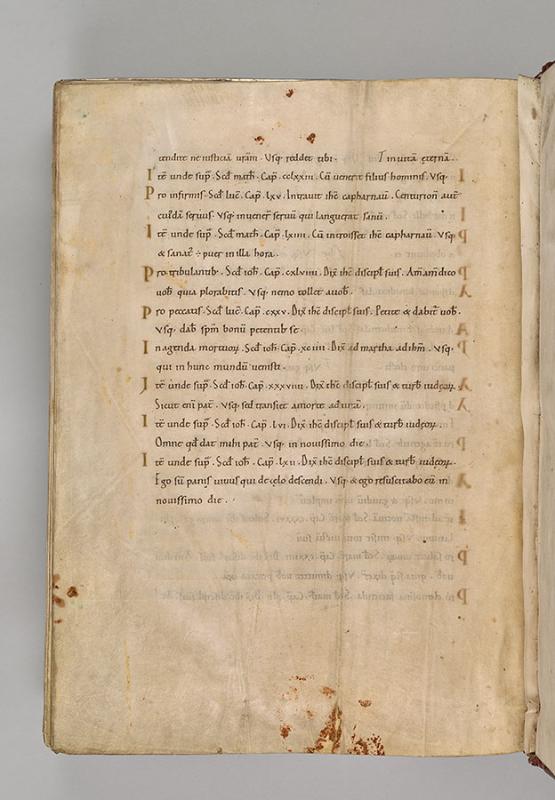 tendite ne iusticiā urām . Usq; reddet tibi . T in uitā ęternā .
Itē unde sup̄ . Scd̄ math̄ . Cap̄ . cclxxiii . Cū uenerit filius hominis . Usq;
Pro infirmis . Scd̄ luc̄ . Cap̄ . lxv . Intrauit ihc̄ capharnaū . Centurion aut̄
cuiđā seruus . Usq; inuener̄ seruū qui languerat sanū .
Itē unde sup̄ . Scd̄ math̄ . Cap̄ . lxiiii . Cū introisset ihc̄ capharnaū . Usq;
& sanat ÷ puer in illa hora .
Pro tribulantib; . Scd̄ ioh̄ . Cap̄ . cxlviiii . Dix̄ ihc̄ discipl̄ suis . Am̄ am̄ dico
uob̄ quia plorabitis . Usq; nemo tollet auob̄ .
Pro peccatis . Scd̄ luc̄ . Cap̄ . cxxv . Dix̄ ihc̄ discipl̄ suis . Petite & dabit̄ uob̄ .
Usq; dab̄ sp̄m bonū petentib; se
In agenda mortuoꝝ . Scd̄ ioh̄ . Cap̄ . xciiii . Dix̄ ad martha ad ihm̄ . Usq;
qui in hunc mundū uenisti .
Itē unde sup̄ . Scd̄ ioh̄ . Cap̄ . xxxviiii . Dix̄ ihc̄ discipl̄ suis & turb̄ iudęoꝝ .
Sicut eni pat̄ . Usq; sed transiet amorte ad uitā .
Itē unde sup̄ . Scd̄ ioh̄ . Cap̄ . lvi . Dix̄ ihc̄ discipl̄ suis & turb̄ iudęoꝝ .
Omne qd̄ dat mihi pat̄ . Usq; in nouissimo die .
Itē unde sup̄ . Scd̄ ioh̄ . Cap̄ . lxii . Dix̄ ihc̄ discipl̄ suis & turb̄ iudęoꝝ .
Ego sū panis uiuus qui de cęlo descendi . Usq; & ego resuscitabo eū in
nouissimo die .